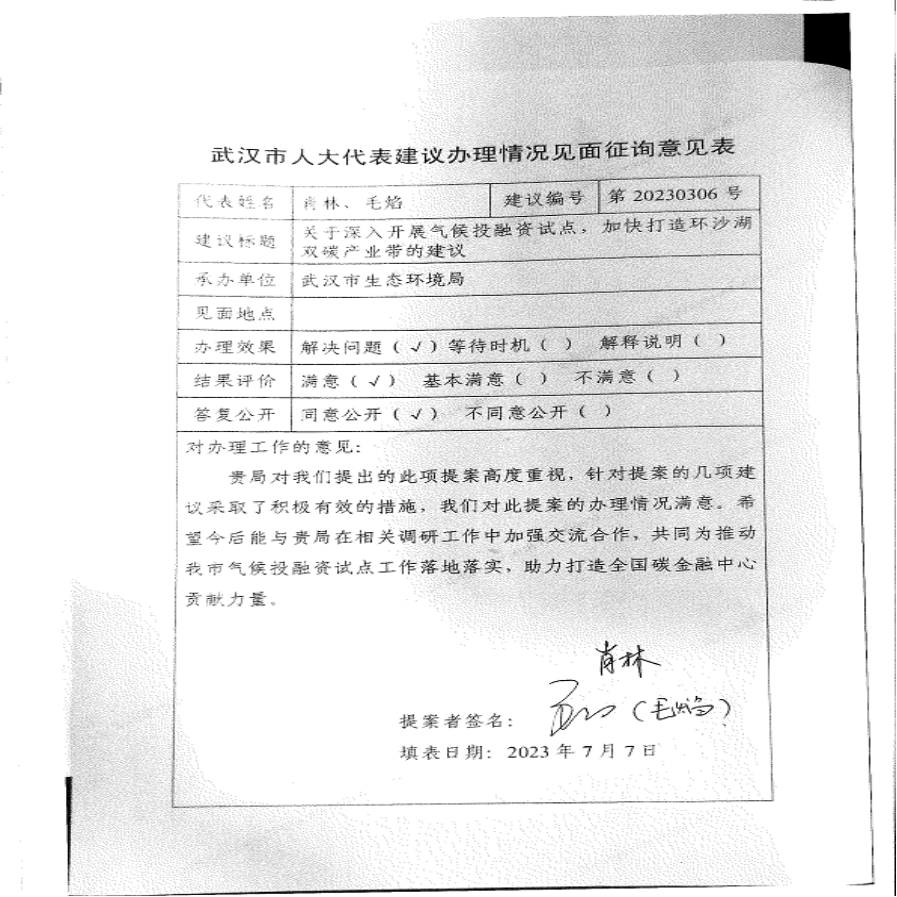 武汉市人大代表建议办理情况见面征询意见表
代表姓名 肖林、毛焰 建议编号 第 20230306 号
建议标题 关于深入开展气候投融资试点，加快打造环沙湖
双碳产业带的建议
承办单位 武汉市生态环境局
见面地点
办理效果 解决问题（√）等待时机（ ） 解释说明（ ）
结果评价 满意（√） 基本满意（ ） 不满意（ ）
答复公开 同意公开（√） 不同意公开（ ）
对办理工作的意见：
贵局对我们提出的此项提案高度重视，针对提案的几项建
议采取了积极有效的措施，我们对此提案的办理情况满意。希
望今后能与贵局在相关调研工作中加强交流合作，共同为推动
我市气候投融资试点工作落地落实，助力打造全国碳金融中心
贡献力量。
肖林
提案者签名： （毛焰）
填表日期：2023 年 7 月 7 日